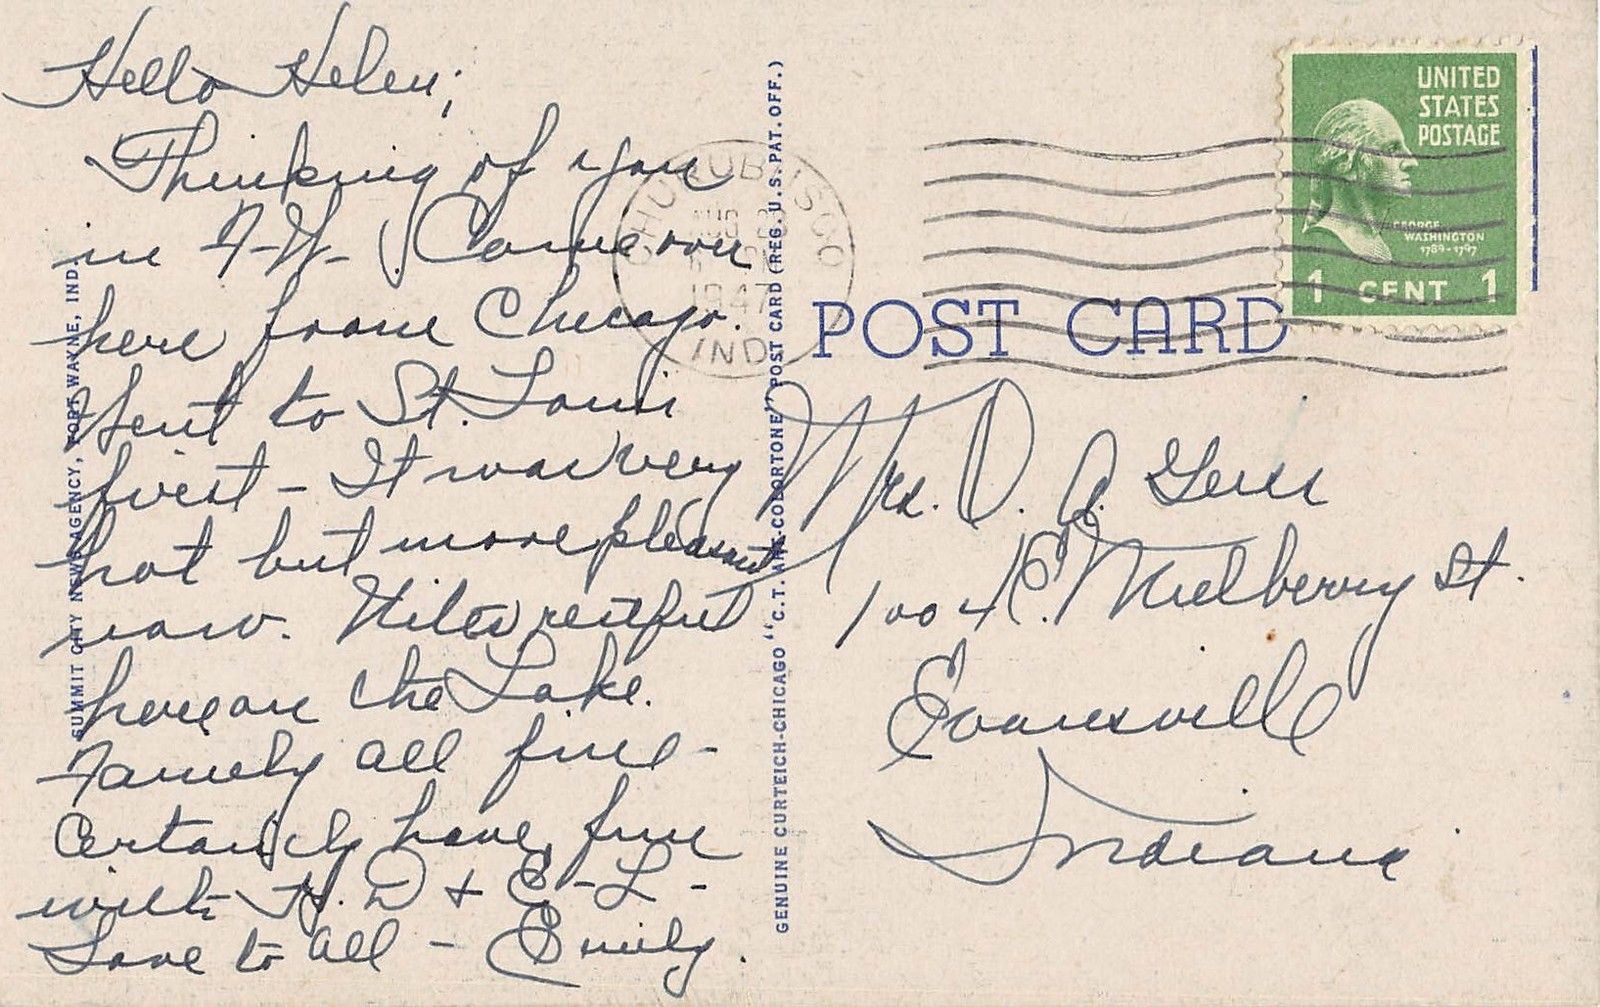 Hello Helen;
Thinking of you
in F-W. Came over
here from Chicago.
Went to St. Louis
first - It was very
hot but more pleasant
now. restful
here on the Lake.
Family all fine -
Certainly have fun
with H. D & E - L -
Love to all - Emily.
SUMMIT CITY NEWS AGENCY, FORT WAYNE, IND.
GENUINE CURTEICH-CHICAGO "C.T. ART-COLORTONE" POST CARD (REG. U.S. PAT. OFF.)
CHURUBUSCO
AUG
1947
IND
POST CARD
UNITED
STATES
POSTAGE
GEORGE
WASHINGTON
1789-1797
1 CENT 1
Mrs. D. A.
1004 E. Mulberry St.
Evansville
Indiana